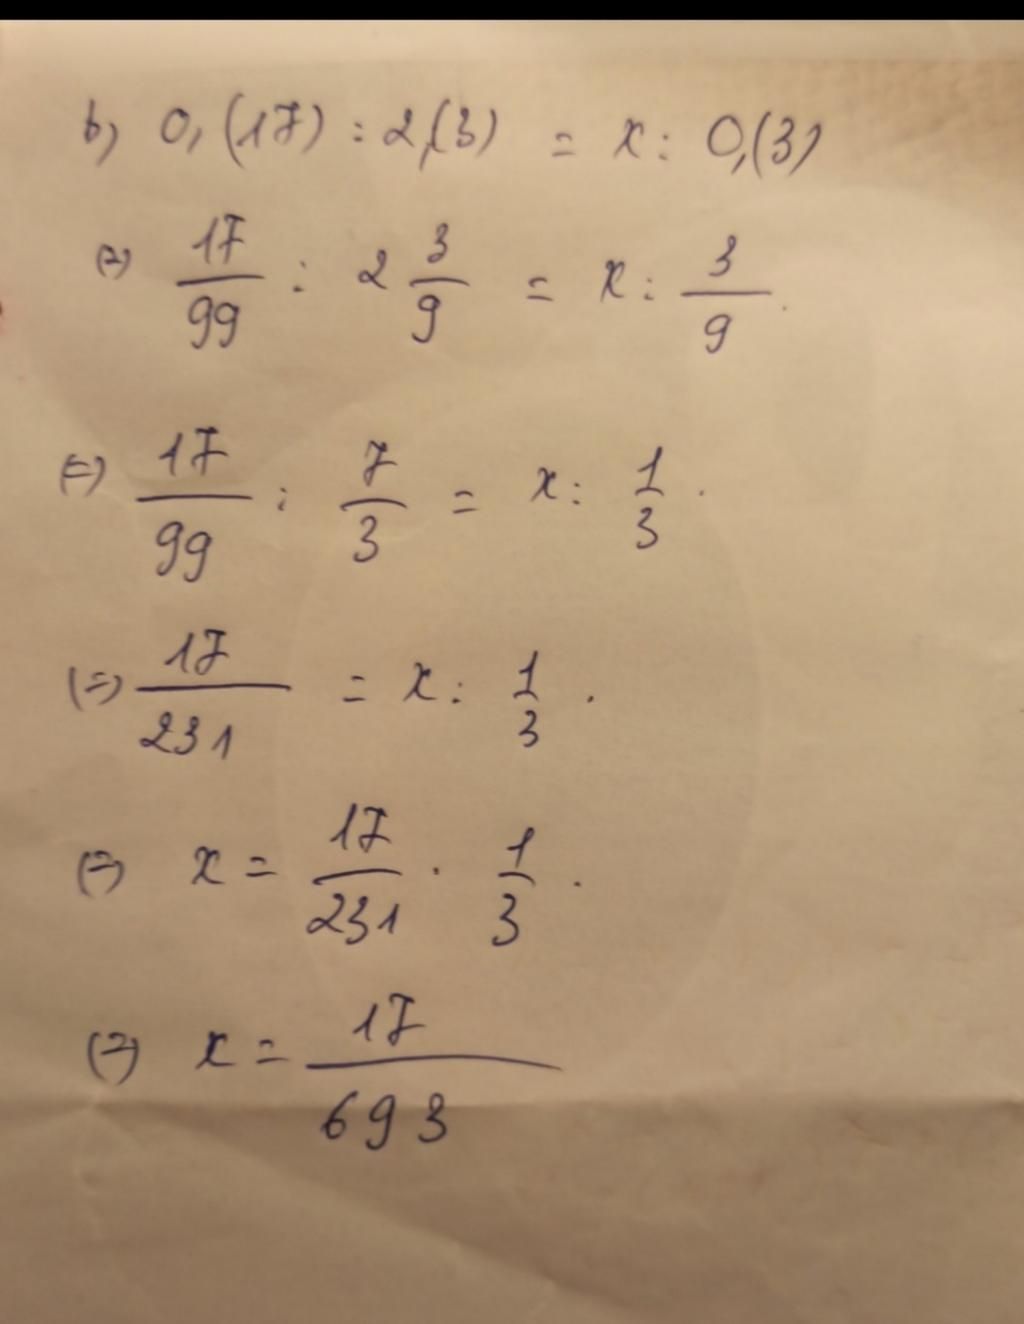 b) 0,(17) : 2,(3) = x : 0,(3)
(=) 17/99 : 2 3/9 = x : 3/9.
(=) 17/99 : 7/3 = x : 1/3.
(=) 17/231 = x : 1/3.
(=) x = 17/231 . 1/3.
(=) x = 17/693